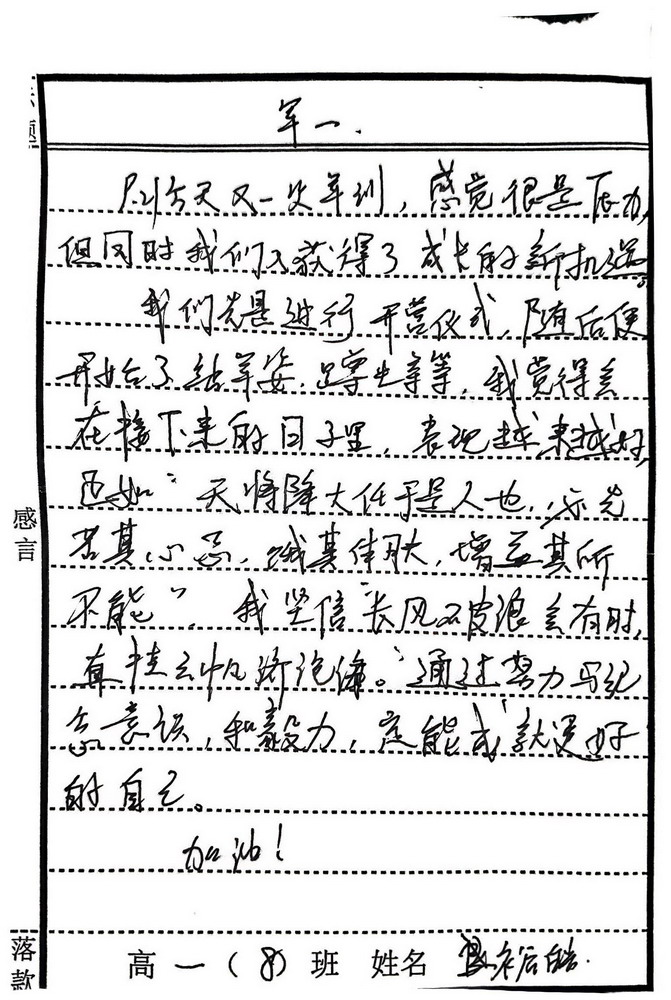 军一.
今天又一次军训，感觉很是压力，
但同时我们又获得了成长的新机遇。
我们先是进行开营仪式，随后便
开始了站军姿，蹲坐等等，我觉得会
在接下来的日子里，表现越来越好，
正如“天将降大任于是人也，必先
苦其心志，饿其体肤，增益其所
不能”，我坚信“长风破浪会有时，
直挂云帆济沧海。”通过努力与纪
念意识，和毅力，定能成就更好
的自己。
加油！
感言
落款
高一（8）班 姓名